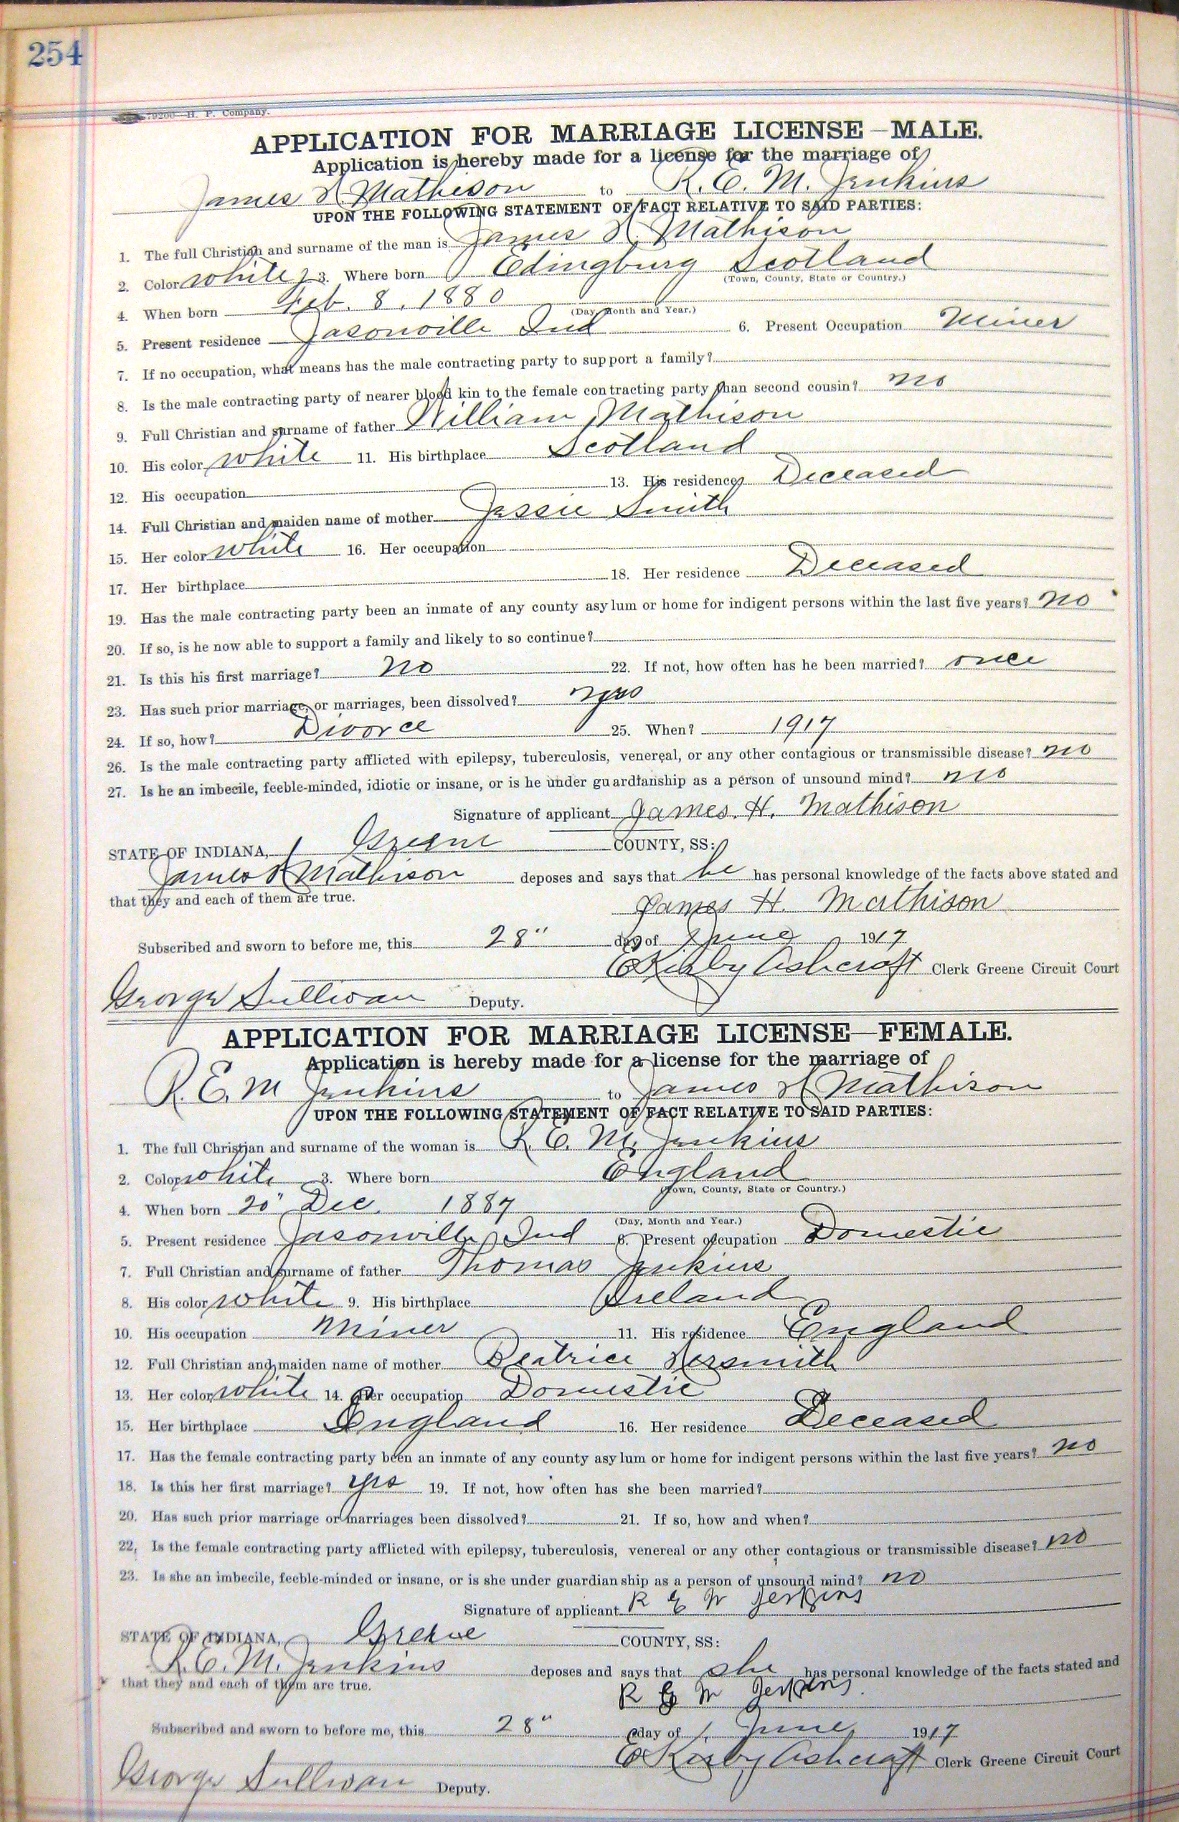 254
79200—H. P. Company.
APPLICATION FOR MARRIAGE LICENSE—MALE.
Application is hereby made for a license for the marriage of
James H Mathison to R. E. M. Jenkins
UPON THE FOLLOWING STATEMENT OF FACT RELATIVE TO SAID PARTIES:
1. The full Christian and surname of the man is James H. Mathison
2. Color white 3. Where born Edingburg Scotland
(Town, County, State or Country.)
4. When born Feb. 8, 1880
(Day, Month and Year.)
5. Present residence Jasonville Ind 6. Present Occupation Miner
7. If no occupation, what means has the male contracting party to support a family?
8. Is the male contracting party of nearer blood kin to the female contracting party than second cousin? no
9. Full Christian and surname of father William Mathison
10. His color white 11. His birthplace Scotland
12. His occupation 13. His residence Deceased
14. Full Christian and maiden name of mother Jessie Smith
15. Her color white 16. Her occupation
17. Her birthplace 18. Her residence Deceased
19. Has the male contracting party been an inmate of any county asylum or home for indigent persons within the last five years? no
20. If so, is he now able to support a family and likely to so continue?
21. Is this his first marriage? no 22. If not, how often has he been married? once
23. Has such prior marriage, or marriages, been dissolved? yes
24. If so, how? Divorce 25. When? 1917
26. Is the male contracting party afflicted with epilepsy, tuberculosis, venereal, or any other contagious or transmissible disease? no
27. Is he an imbecile, feeble-minded, idiotic or insane, or is he under guardianship as a person of unsound mind? no
Signature of applicant James. H. Mathison
STATE OF INDIANA, Greene COUNTY, SS:
James H Mathison deposes and says that he has personal knowledge of the facts above stated and
that they and each of them are true.
James H. Mathison
Subscribed and sworn to before me, this 28" day of June 1917
E Kirby Ashcraft Clerk Greene Circuit Court
George Sullivan Deputy.
APPLICATION FOR MARRIAGE LICENSE—FEMALE.
Application is hereby made for a license for the marriage of
R. E. M Jenkins to James H Mathison
UPON THE FOLLOWING STATEMENT OF FACT RELATIVE TO SAID PARTIES:
1. The full Christian and surname of the woman is R. E. M. Jenkins
2. Color white 3. Where born England
(Town, County, State or Country.)
4. When born 20" Dec. 1887
(Day, Month and Year.)
5. Present residence Jasonville Ind 6. Present occupation Domestic
7. Full Christian and surname of father Thomas Jenkins
8. His color white 9. His birthplace Ireland
10. His occupation Miner 11. His residence England
12. Full Christian and maiden name of mother Beatrice
13. Her color white 14. Her occupation Domestic
15. Her birthplace England 16. Her residence Deceased
17. Has the female contracting party been an inmate of any county asylum or home for indigent persons within the last five years? no
18. Is this her first marriage? yes 19. If not, how often has she been married?
20. Has such prior marriage or marriages been dissolved? 21. If so, how and when?
22. Is the female contracting party afflicted with epilepsy, tuberculosis, venereal or any other contagious or transmissible disease? no
23. Is she an imbecile, feeble-minded or insane, or is she under guardianship as a person of unsound mind? no
Signature of applicant R E M Jenkins
STATE OF INDIANA, Greene COUNTY, SS:
R. E. M. Jenkins deposes and says that she has personal knowledge of the facts stated and
that they and each of them are true.
R E M Jenkins.
Subscribed and sworn to before me, this 28" day of June 1917
E Kirby Ashcraft Clerk Greene Circuit Court
George Sullivan Deputy.